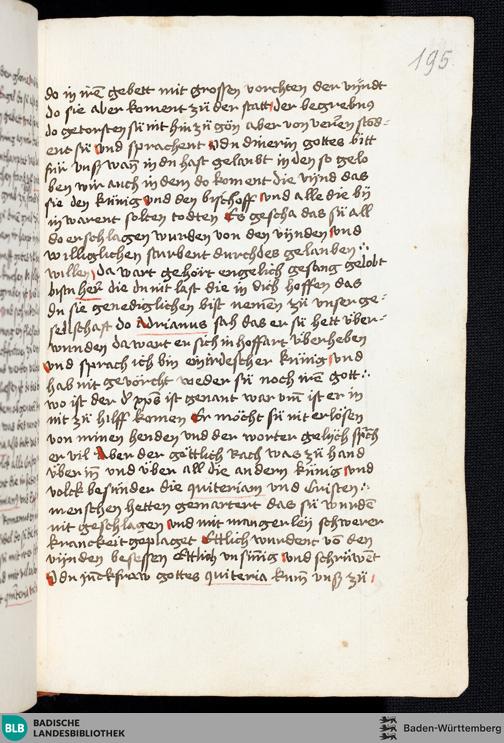 195.
do in irē gebett mit grossen vorchten der vÿndt
do sie aber koment zů der statt der begrebnus
do getorsten sü nit hin zů gon aber von verrē stōd=
ent sü vnd sprachent O du dinerin gottes bitt
für vnß wañ in dē du hast gelaubt in den so gelo
ben wir auch in dem do koment die vijnd das
sie den künig vnd den bischoff vnd alle die bÿ
in warent solten todten Es geschach das sü all
do erschlagen wurden von den vijnden vnd
williglichen sturbent durch des gelauben
willen da wart gehört engelich gesang gelobt
bistu her die du nit last die in dich hoffen das
du sie genediglichen bist nemen zů vnser ge=
selschaft do Adrianus sah das er sü hett über=
wunden da wart er sich in hoffart überheben
vnd sprach ich bin ein irdescher künig vnd
hab nit gevörcht weder sü noch irē gott
wo ist der der xp̄s ist genant war vm̄ ist er in
nit zů hilff komen Er möcht sü nit erlösen
von minen henden vnd der worter gelych sprch
er vil Aber der göttlich Rach was zů hand
über in vnd über all die andern künig vnd
volck besunder die quiteriam vnd Cristen
menschen hetten gemartert das sü wurdē
mit geschlagen vnd mit mangerleÿ schwerer
kranckeit geplaget Ettlich wurdent vō den
vijnden besessen Ettlich vnsinnig vnd schruwēt
O du junckfraw gottes quiteria kum vnß zů
BLB
BADISCHE
LANDESBIBLIOTHEK
Baden-Württemberg